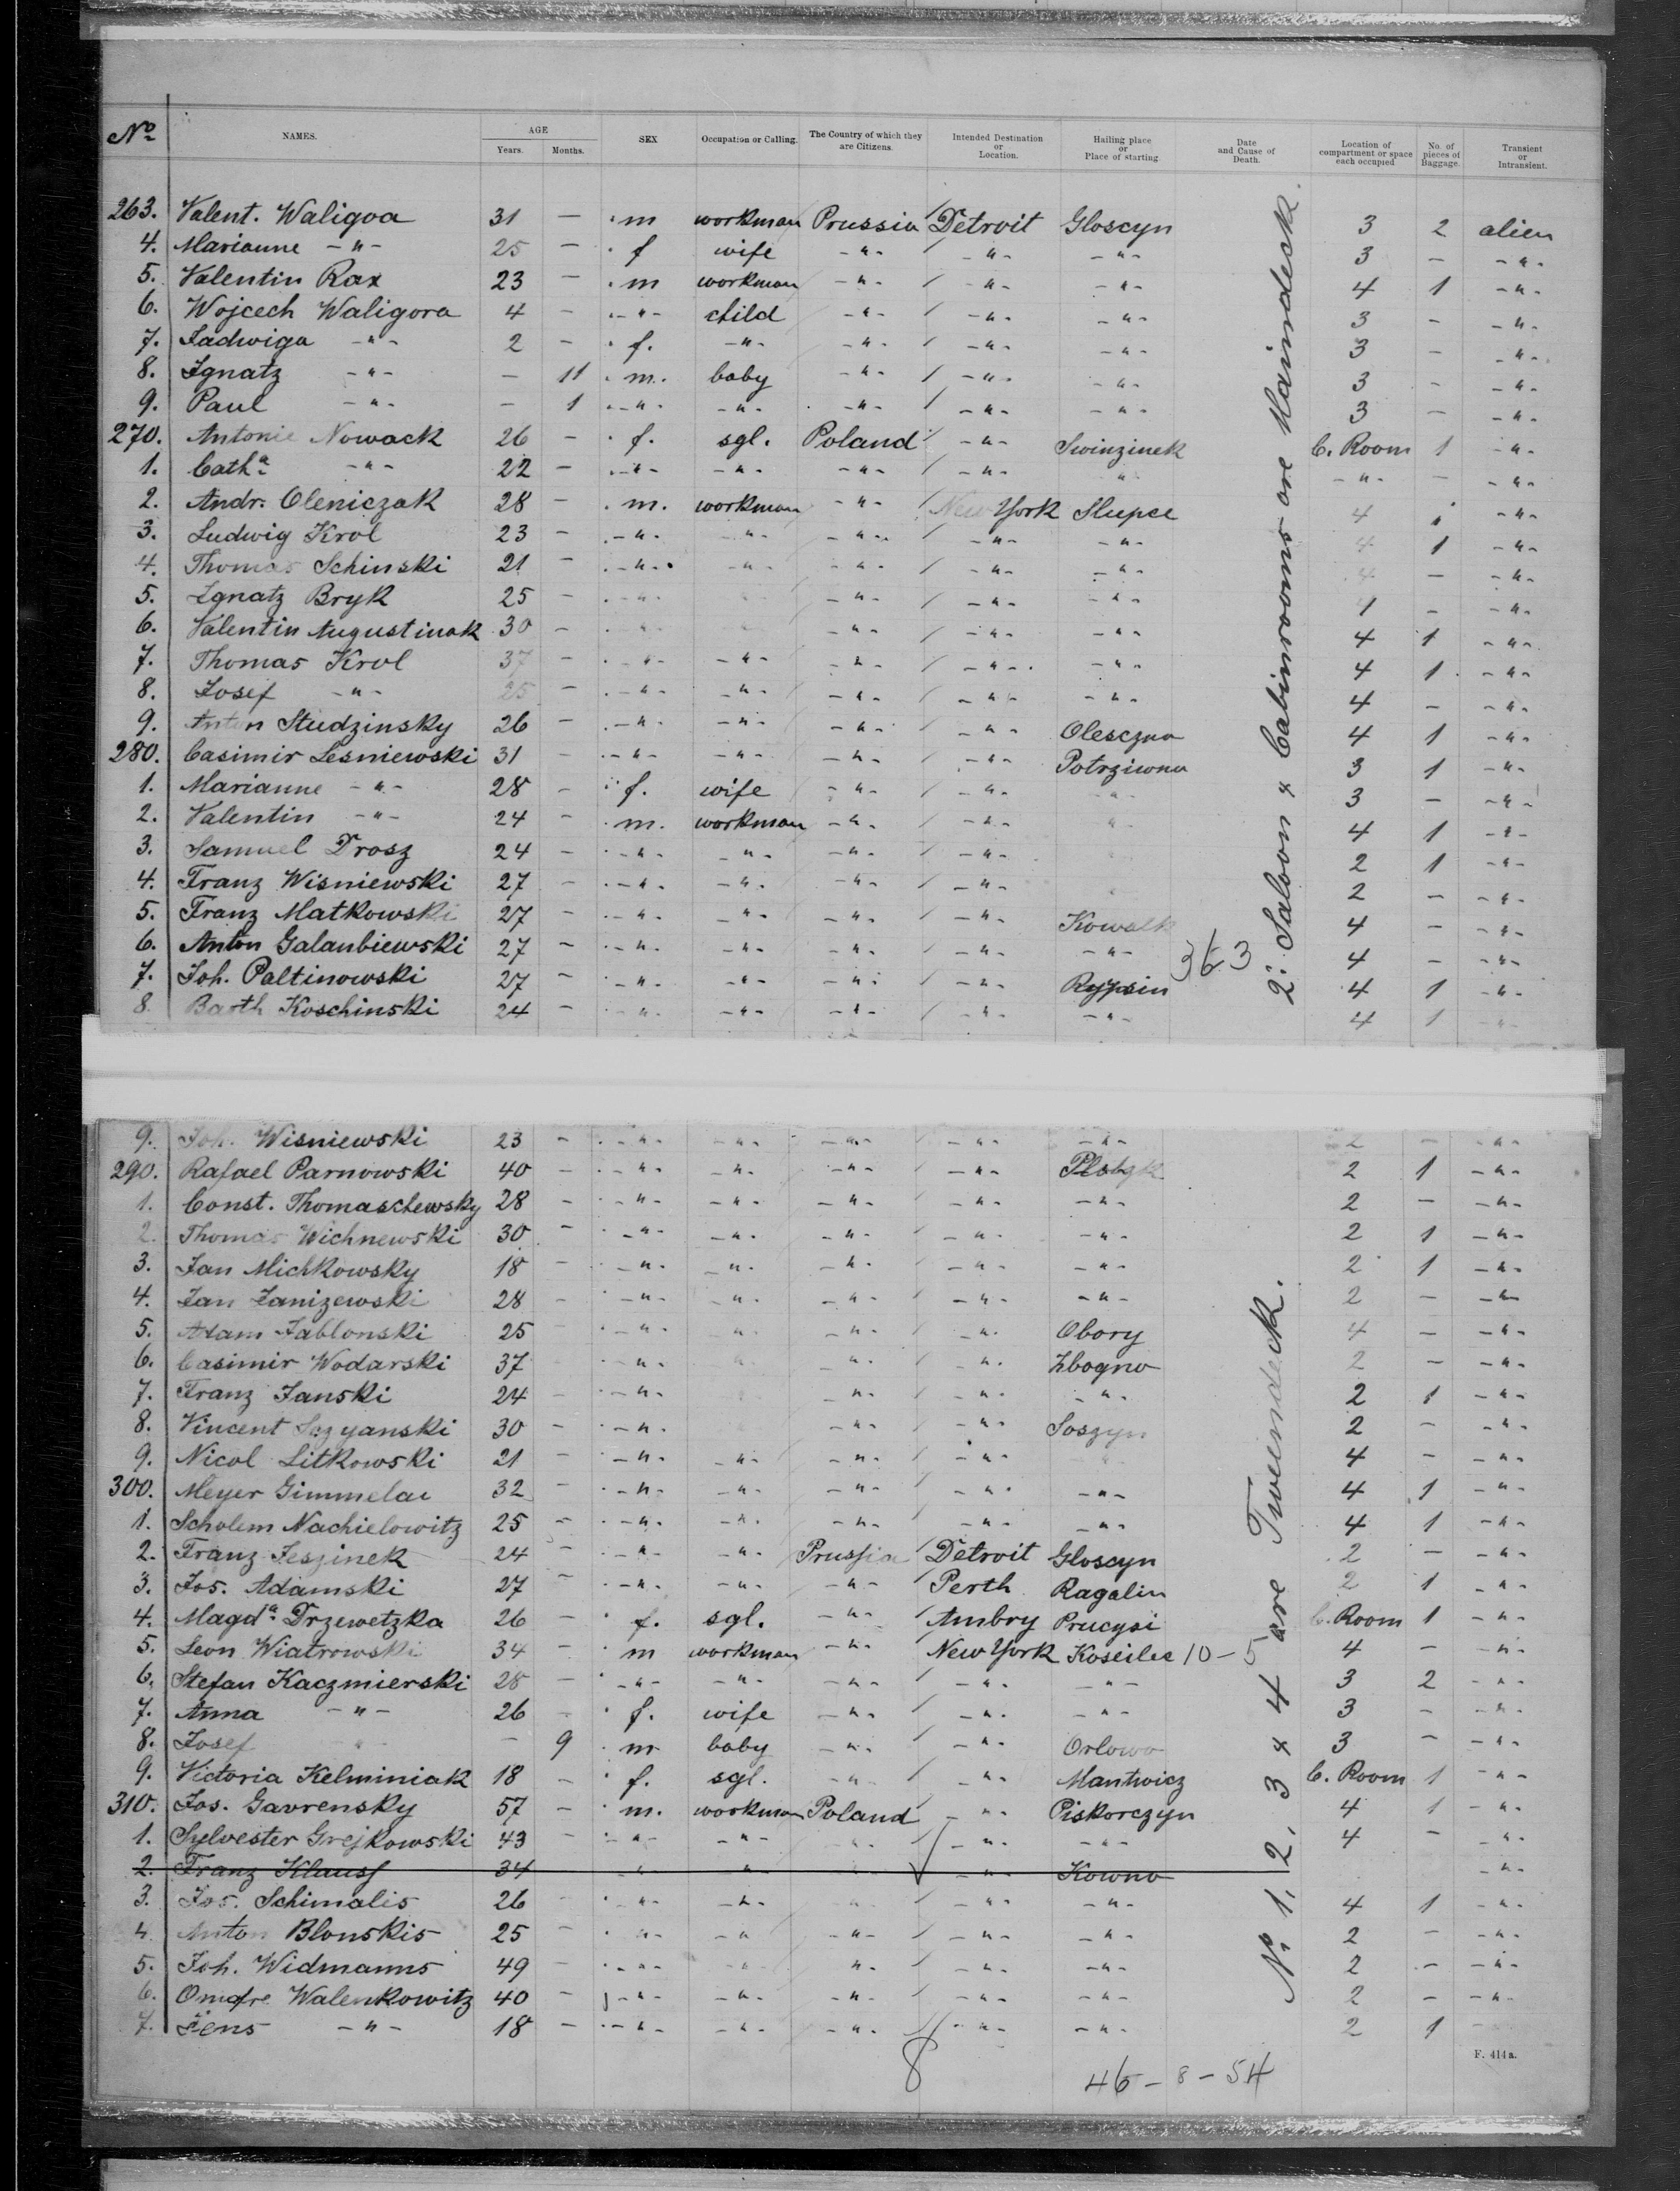 No. NAMES. AGE Years. Months. SEX Occupation or Calling. The Country of which they are Citizens. Intended Destination or Location. Hailing place or Place of starting. Date and Cause of Death. Location of compartment or space each occupied No. of pieces of Baggage. Transient or Intransient.
263. Valent. Waligoa 31 — m workman Prussia Detroit Gloscyn 3 2 alien
4. Marianne -"- 25 — f wife -"- -"- -"- 3 — -"-
5. Valentin Rax 23 — m workman -"- -"- -"- 4 1 -"-
6. Wojcech Waligora 4 — -"- child -"- -"- -"- 3 — -"-
7. Jadwiga -"- 2 — f. -"- -"- -"- -"- 3 — -"-
8. Ignatz -"- — 11 m. baby -"- -"- -"- 3 — -"-
9. Paul -"- — 1 -"- -"- -"- -"- -"- 3 — -"-
270. Antonie Nowack 26 — f. sgl. Poland -"- Swinzinek C. Room 1 -"-
1. Cath.a -"- 22 — -"- -"- -"- -"- " -"- — -"-
2. Andr. Oleniczak 28 — m. workman -"- New York Slupce 4 1 -"-
3. Ludwig Krol 23 — -"- -"- -"- -"- -"- 4 1 -"-
4. Thomas Schinski 21 — -"- -"- -"- -"- -"- 4 — -"-
5. Ignatz Bryk 25 — -"- -"- -"- -"- 1 — -"-
6. Valentin Augustinak 30 — -"- -"- -"- -"- 4 1 -"-
7. Thomas Krol 37 — -"- -"- -"- -"- -"- 4 1 -"-
8. Josef -"- 25 — -"- -"- -"- -"- -"- 4 — -"-
9. Anton Studzinsky 26 — -"- -"- -"- -"- Olesczno 4 1 -"-
280. Casimir Lesniewski 31 — -"- -"- -"- -"- Potrziwno 3 1 -"-
1. Marianne -"- 28 — f. wife -"- -"- -"- 3 — -"-
2. Valentin -"- 24 — m. workman -"- -"- " 4 1 -"-
3. Samuel Drosz 24 — -"- -"- -"- -"- 2 1 -"-
4. Franz Wisniewski 27 — -"- -"- -"- -"- " 2 — -"-
5. Franz Matkowski 27 — -"- -"- -"- -"- Kowalk 4 — -"-
6. Anton Galanbiewski 27 — -"- -"- -"- -"- -"- 363 4 — -"-
7. Joh. Paltinowski 27 — -"- -"- -"- -"- Rypsin 4 1 -"-
8. Barth Koschinski 24 — -"- -"- -"- -"- -"- 4 1 -"-
2. Saloon & Cabinrooms are Maindeck.
9. Joh. Wisniewski 23 — -"- -"- -"- -"- -"- 2 — -"-
290. Rafael Parnowski 40 — -"- -"- -"- -"- 2 1 -"-
1. Const. Thomaschewsky 28 — -"- -"- -"- -"- -"- 2 — -"-
2. Thomas Wichnewski 30 — -"- -"- -"- -"- -"- 2 1 -"-
3. Jan Michkowsky 18 — -"- -"- -"- -"- -"- 2 1 -"-
4. Jan Janizewski 28 — -"- -"- -"- -"- -"- 2 — -"-
5. Adam Jablonski 25 — -"- -"- -"- -"- Obory 4 — -"-
6. Casimir Wodarski 37 -"- -"- -"- Zbogno 2 — -"-
7. Franz Janski 24 — -"- -"- -"- -"- 2 1 -"-
8. Vincent Sczyanski 30 — -"- -"- -"- Soszyn 2 — -"-
9. Nicol Litkowski 21 — -"- -"- -"- -"- 4 — -"-
300. Meyer Gimmelar 32 — -"- -"- -"- -"- -"- 4 1 -"-
1. Scholem Nachielowitz 25 — -"- -"- -"- -"- -"- 4 1 -"-
2. Franz Jeszinek 24 — -"- -"- Prussia Detroit Gloscyn 2 — -"-
3. Jos. Adamski 27 — -"- -"- -"- Perth Ragalin 2 1 -"-
4. Magd.a Drzewetzka 26 — f. sgl. -"- Ambry Prucysi C. Room 1 -"-
5. Leon Wiatrowski 34 — m workman -"- New York Koseilec 10 - 5 4 — -"-
6. Stefan Kaczmierski 28 — -"- -"- -"- -"- -"- 3 2 -"-
7. Anna -"- 26 — f. wife -"- -"- -"- 3 — -"-
8. Josef " — 9 m baby -"- -"- Orlowo 3 — -"-
9. Victoria Kelminiak 18 — f. sgl. -"- -"- Mantwicz C. Room 1 -"-
310. Jos. Gavrensky 57 — m. workman Poland -"- Piskorczyn 4 1 -"-
1. Sylvester Grejkowski 43 — -"- -"- -"- -"- -"- 4 — -"-
2. Franz Klauss 34 " " -"- -"- Kowno -"-
3. Jos. Schimalis 26 — -"- -"- -"- -"- -"- 4 1 -"-
4. Anton Blonskis 25 — -"- -"- -"- -"- -"- 2 — -"-
5. Joh. Widmanns 49 — -"- -"- -"- -"- -"- 2 — -"-
6. Omofre Walenkowitz 40 — -"- -"- -"- -"- -"- 2 — -"-
7. Jens -"- 18 — -"- -"- -"- -"- -"- 2 1
No. 1, 2, 3 & 4 are Tweendeck.
F. 414a.
8 46 - 8 - 54